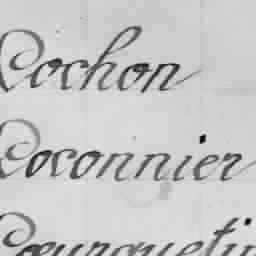 Cochon
Coconnier